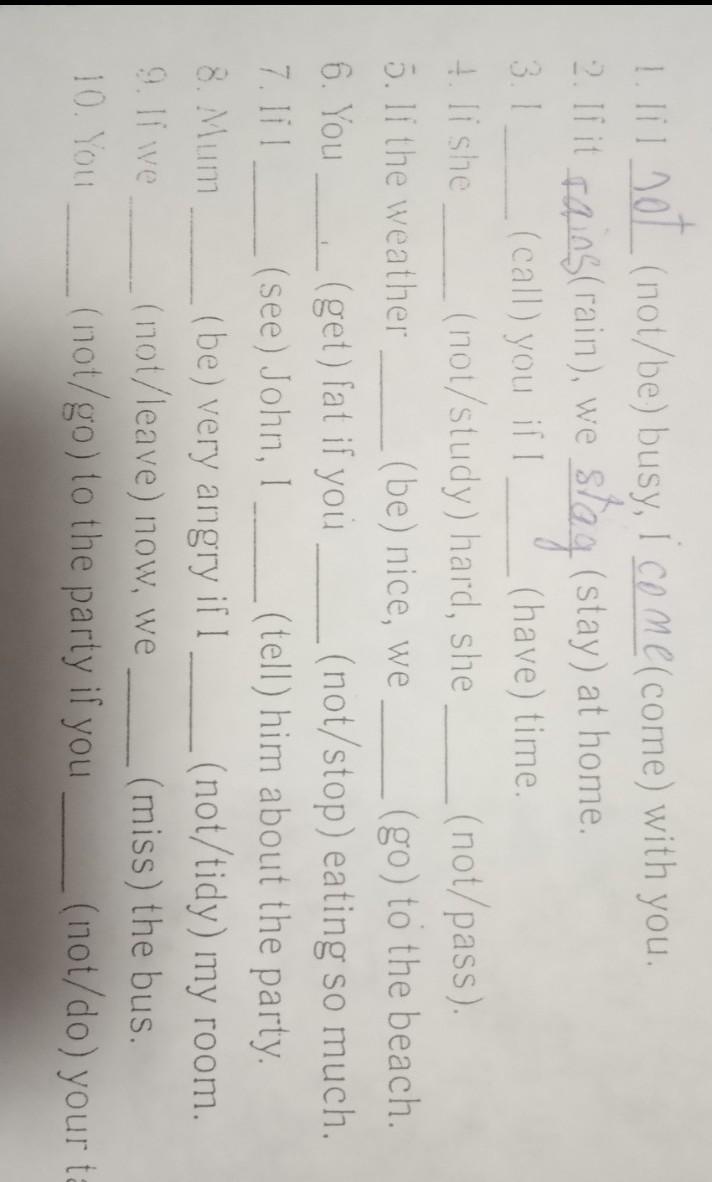 1. If I not (not/be) busy, I come (come) with you.
2. If it rains (rain), we stay (stay) at home.
3. I ____ (call) you if I ____ (have) time.
4. If she ____ (not/study) hard, she ____ (not/pass).
5. If the weather ____ (be) nice, we ____ (go) to the beach.
6. You ____ (get) fat if you ____ (not/stop) eating so much.
7. If I ____ (see) John, I ____ (tell) him about the party.
8. Mum ____ (be) very angry if I ____ (not/tidy) my room.
9. If we ____ (not/leave) now, we ____ (miss) the bus.
10. You ____ (not/go) to the party if you ____ (not/do) your